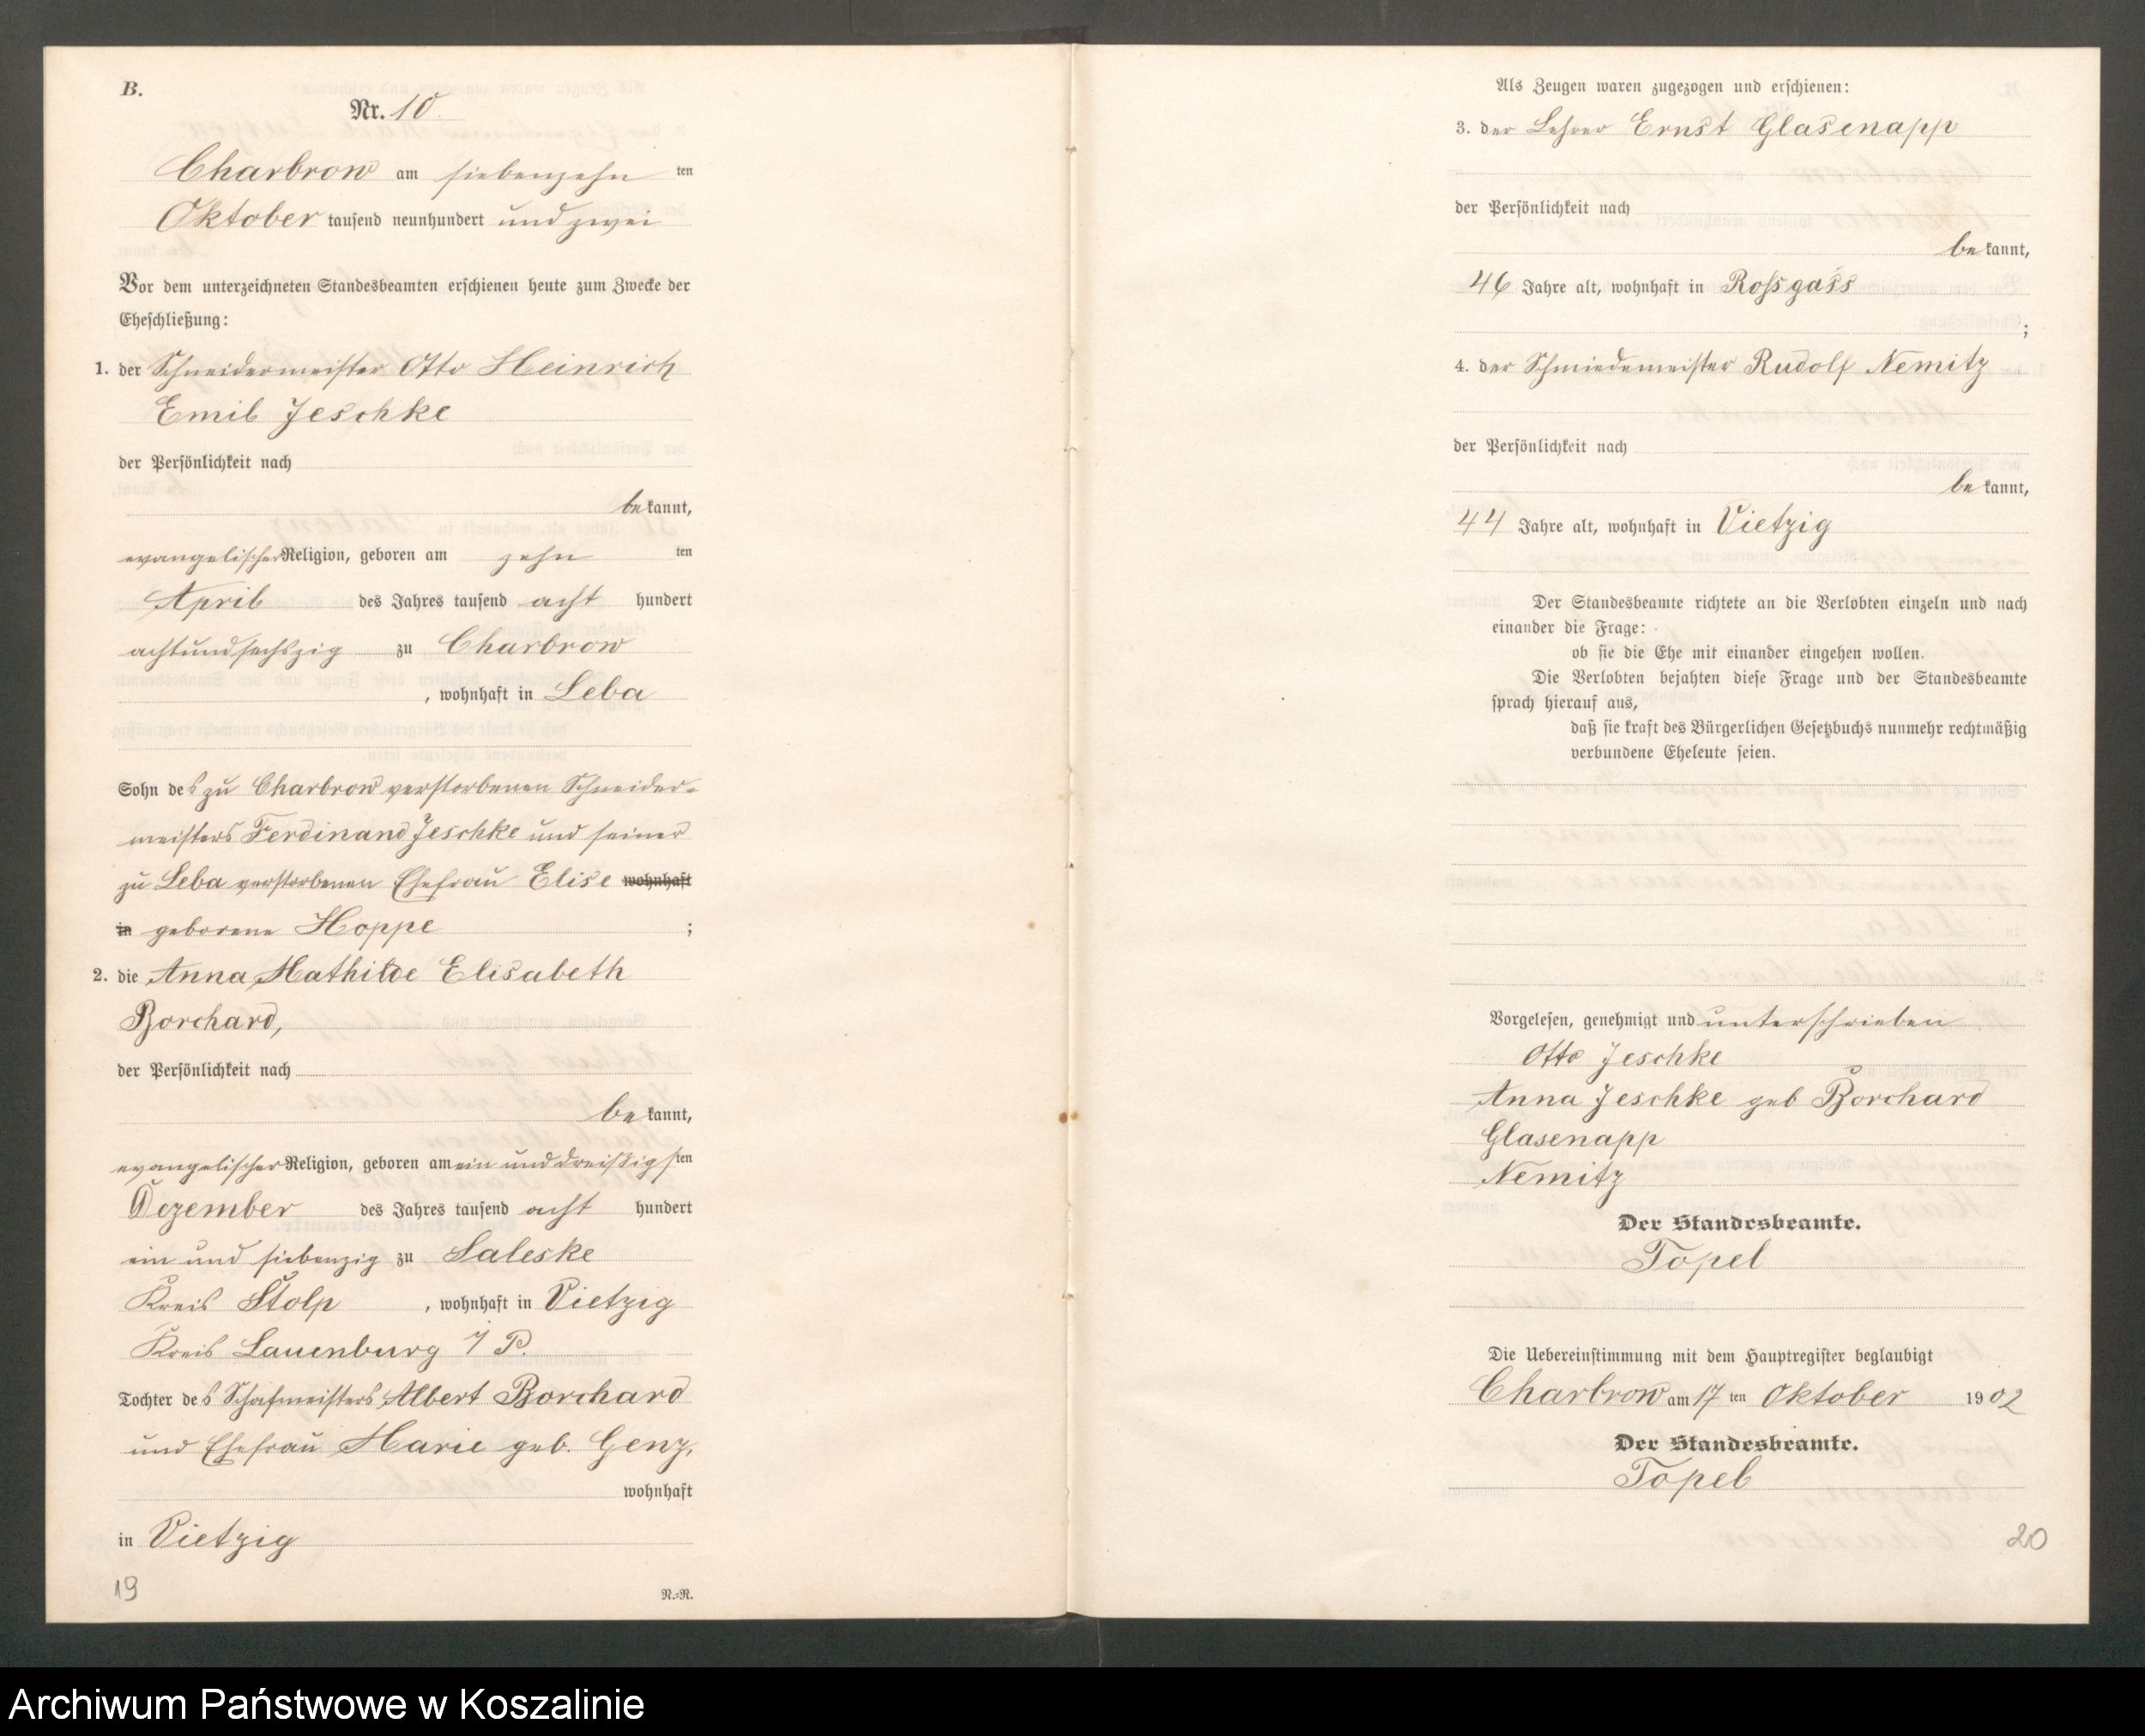 B.
Nr. 10.
Charbrow am siebenzehn ten
Oktober tausend neunhundert und zwei
Vor dem unterzeichneten Standesbeamten erschienen heute zum Zwecke der
Eheschließung:
1. der Schneidermeister Otto Heinrich
Emil Jeschke
der Persönlichkeit nach
be kannt,
evangelischer Religion, geboren am zehn ten
April des Jahres tausend acht hundert
achtundsechszig zu Charbrow
, wohnhaft in Leba
Sohn des zu Charbrow verstorbenen Schneider-
meisters Ferdinand Jeschke und seiner
zu Leba verstorbenen Ehefrau Elise wohnhaft
in geborene Hoppe ;
2. die Anna Mathilde Elisabeth
Borchard,
der Persönlichkeit nach
be kannt,
evangelischer Religion, geboren am ein und dreißigsten
Dezember des Jahres tausend acht hundert
ein und siebenzig zu Saleske
Kreis Stolp , wohnhaft in Vietzig
Kreis Lauenburg i/P.
Tochter des Schafmeisters Albert Borchard
und Ehefrau Marie geb. Genz,
wohnhaft
in Vietzig
19
N.=N.
Als Zeugen waren zugezogen und erschienen:
3. der Lehrer Ernst Glasenapp
der Persönlichkeit nach
be kannt,
46 Jahre alt, wohnhaft in Roßgars
;
4. der Schmiedemeister Rudolf Nemitz
der Persönlichkeit nach
be kannt,
44 Jahre alt, wohnhaft in Vietzig
Der Standesbeamte richtete an die Verlobten einzeln und nach
einander die Frage:
ob sie die Ehe mit einander eingehen wollen.
Die Verlobten bejahten diese Frage und der Standesbeamte
sprach hierauf aus,
daß sie kraft des Bürgerlichen Gesetzbuchs nunmehr rechtmäßig
verbundene Eheleute seien.
Vorgelesen, genehmigt und unterschrieben
Otto Jeschke
Anna Jeschke geb Borchard
Glasenapp
Nemitz
Der Standesbeamte.
Topel
Die Uebereinstimmung mit dem Hauptregister beglaubigt
Charbrow am 17 ten Oktober 1902
Der Standesbeamte.
Topel
20
Archiwum Państwowe w Koszalinie